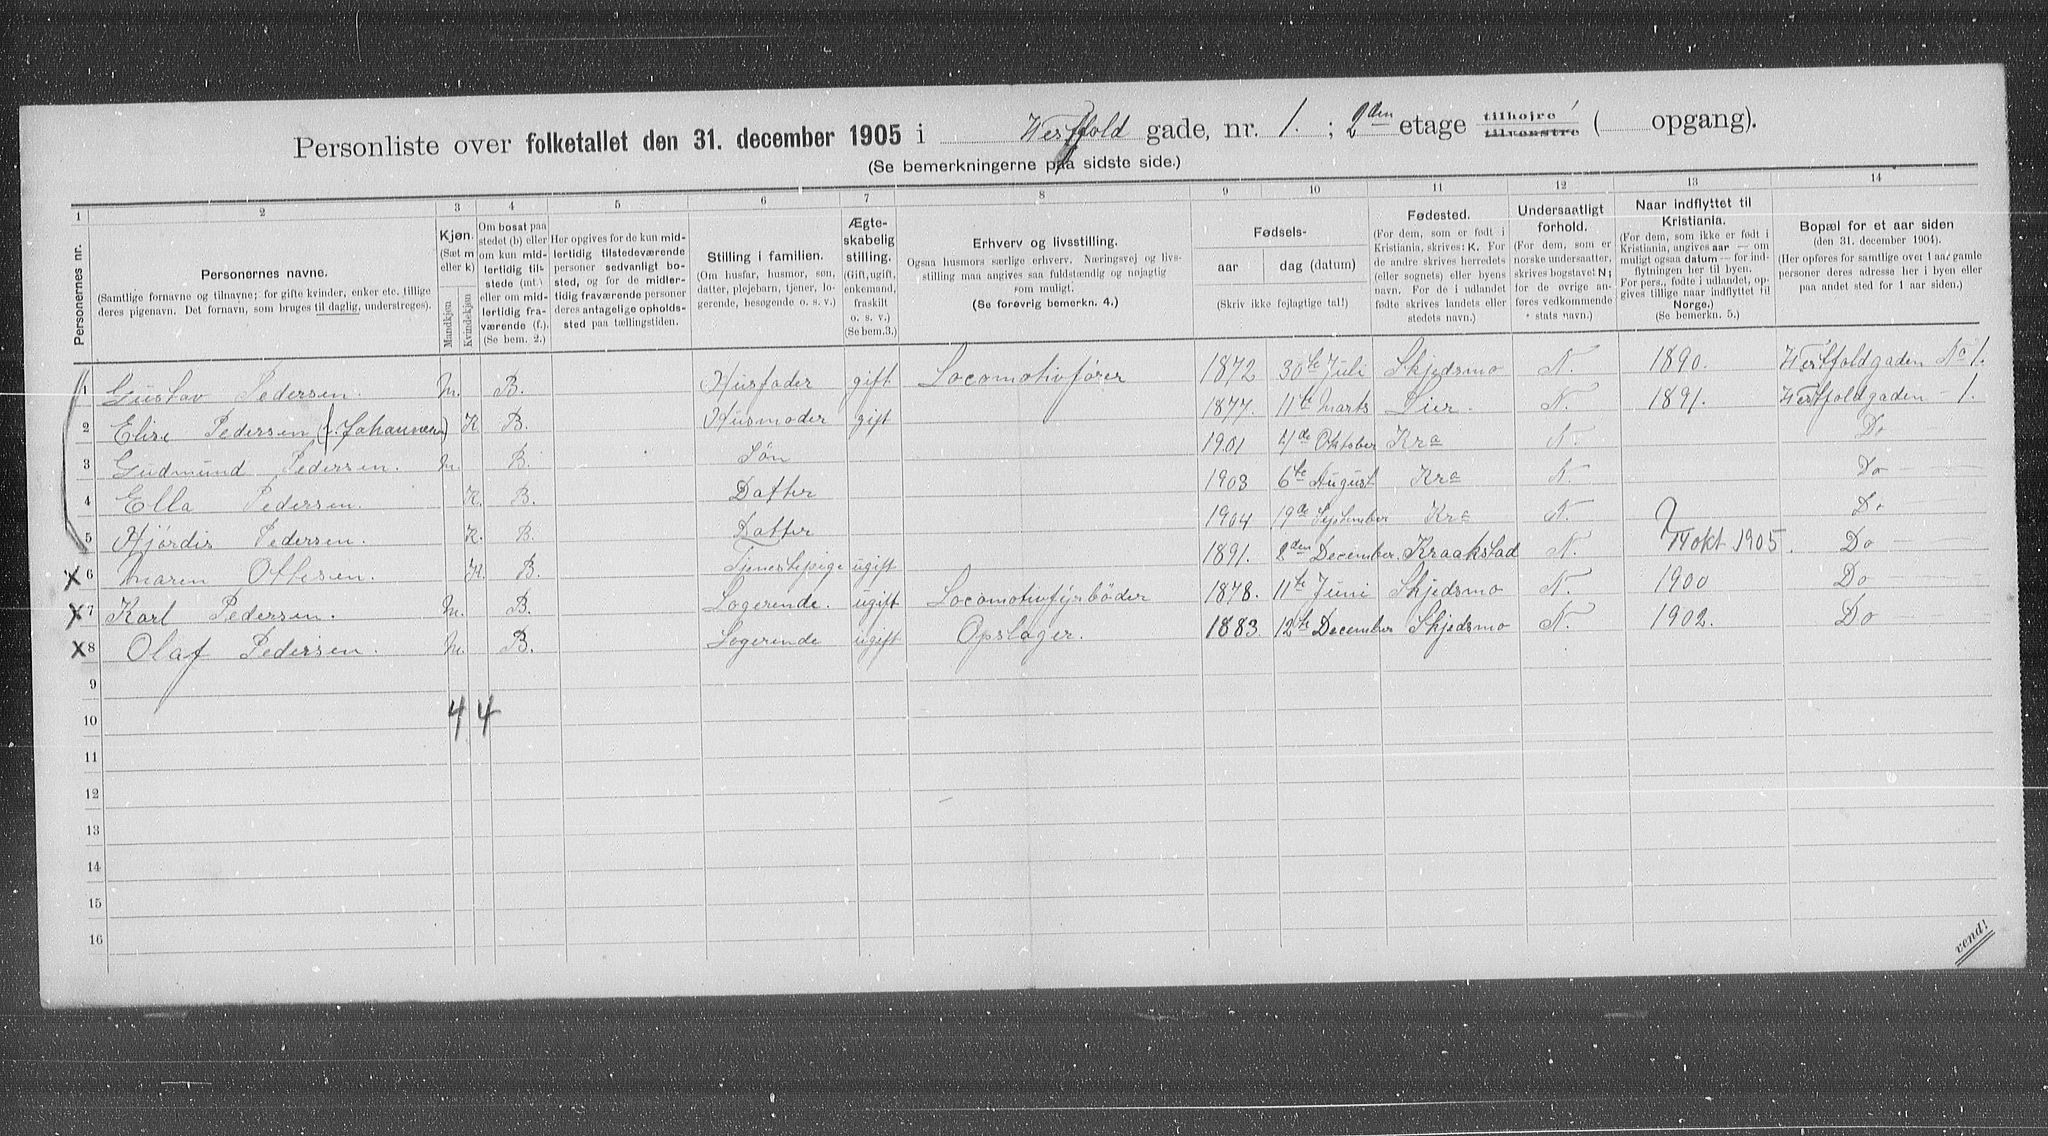 Personliste over folketallet den 31. december 1905 i Vestfold gade, nr. 1. ; 2den etage tilhøjre tilvenstre ( opgang).
(Se bemerkningerne paa sidste side.)
1 2 3 4 5 6 7 8 9 10 11 12 13 14
Personernes nr.
Personernes navne.
(Samtlige fornavne og tilnavne; for gifte kvinder, enker etc. tillige
deres pigenavn. Det fornavn, som bruges til daglig, understreges).
Kjøn.
(Sæt m
eller k)
Mandkjøn
Kvindekjøn
Om bosat paa
stedet (b) eller
om kun mid-
lertidig til-
stede (mt.)
eller om mid-
lertidig fra-
værende (f.).
(Se bem. 2.)
Her opgives for de kun mid-
lertidig tilstedeværende
personer sedvanlig bo-
sted, og for de midler-
tidig fraværende personer
deres antagelige opholds-
sted paa tællingstiden.
Stilling i familien.
(Om husfar, husmor, søn,
datter, plejebarn, tjener, lo-
gerende, besøgende o. s. v.)
Ægte-
skabelig
stilling.
(Gift, ugift,
enkemand,
fraskilt
o. s. v.)
(Se bem.3.)
Erhverv og livsstilling.
Ogsaa husmors særlige erhverv. Næringsvej og livs-
stilling maa angives saa fuldstændig og nøjagtig
som muligt.
(Se forøvrig bemerkn. 4.)
Fødsels-
aar
dag (datum)
(Skriv ikke fejlagtige tal!)
Fødested.
(For dem, som er født i
Kristiania, skrives: K. For
de andre skrives herredets
(eller sognets) eller byens
navn. For de i udlandet
fødte skrives landets eller
stedets navn.)
Undersaatligt
forhold.
(For dem, som er
norske undersaatter,
skrives bogstavet N;
for de øvrige an-
føres vedkommende
stats navn.)
Naar indflyttet til
Kristiania.
(For dem, som ikke er født i
Kristiania, angives aar — om
muligt ogsaa datum — for ind-
flytningen her til byen.
For pers., fødte i udlandet, op-
gives tillige naar indflyttet til
Norge.)
(Se bemerkn. 5.)
Bopæl for et aar siden
(den 31. december 1904).
(Her opføres for samtlige over 1 aar gamle
personer deres adresse her i byen eller
paa andet sted for 1 aar siden.)
1 Gustav Pedersen. m. B. Husfader gift Locomotivfører 1872 30te Juli Skjedsmo N. 1890. Vestfoldgaden No 1.
2 Elise Pedersen (f. Johannesen) K B. Husmoder gift 1877. 11te Marts Lier. N. 1891. Vestfoldgaden - 1.
3 Gudmund Pedersen. m. B. Søn 1901 4de Oktober Kra N. Do
4 Ella Pedersen. K. B. Datter 1903 6te August Kra N. Do
5 Hjørdis Pedersen. K. B. Datter 1904 19de September Kra N. Do
x 6 Maren Ottesen. K. B. Tjenestepige ugift 1891. 2den December. Kraakstad N. ? okt 1905. Do
x 7 Karl Pedersen. m. B. Logerende. ugift Locomotivfyrbøder 1878. 11te Juni Skjedsmo N. 1900 Do
x 8 Olaf Pedersen. m. B. Logerende ugift Opslager. 1883. 12te December Skjedsmo N. 1902. Do
9
10 4 4
11
12
13
14
15
16
vend!